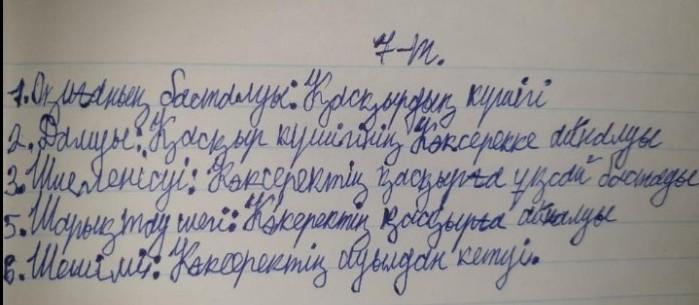 7-т.
1. Оқиғаның басталуы: Қасқырдың күшігі
2. Дамуы: Қасқыр күшігінің Көксерекке айналуы
3. Шиеленісуі: Көксеректің қасқырға ұқсай бастады
5. Шарықтау шегі: Көкеректің қасқырға айналуы
6. Шешімі: Көксеректің ауылдан кетуі.